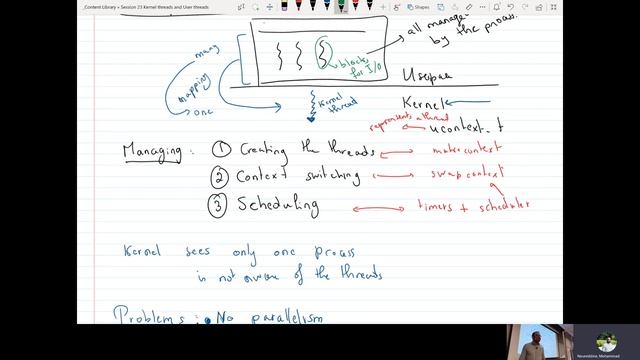 _Content Library » Session 23 Kernel threads and User threads
all manage
by the process.
blocks
for I/O
Userspace
many
mapping
one
kernel
thread
Kernel
represents a thread
ucontext_t
Managing : ① Creating the threads makecontext
② Context switching swapcontext
③ Scheduling timers + scheduler
Kernel sees only one process
is not aware of the threads
Problems : • No parallelism
Noureddine, Mohammad